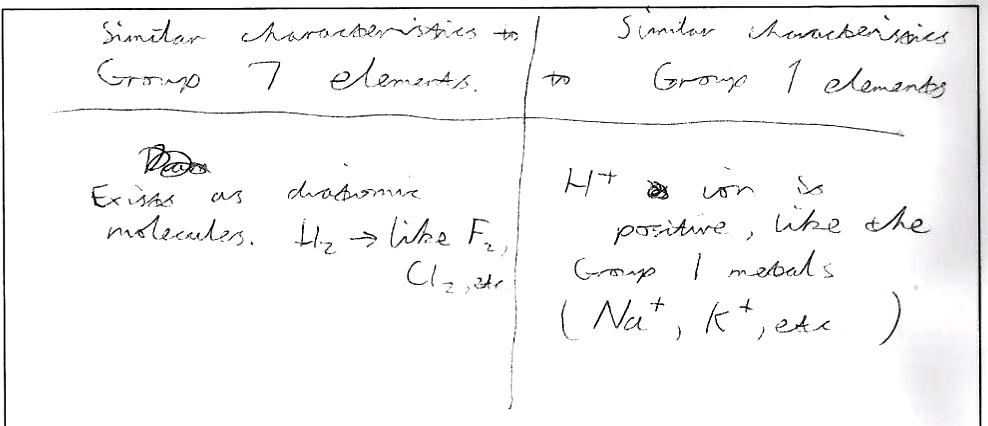 Similar characteristics to
Group 7 elements.
Similar characteristics
to Group 1 elements
Exists as diatomic
molecules. H₂ → like F₂,
Cl₂, etc
H⁺ ion is
positive, like the
Group 1 metals
(Na⁺, K⁺, etc)